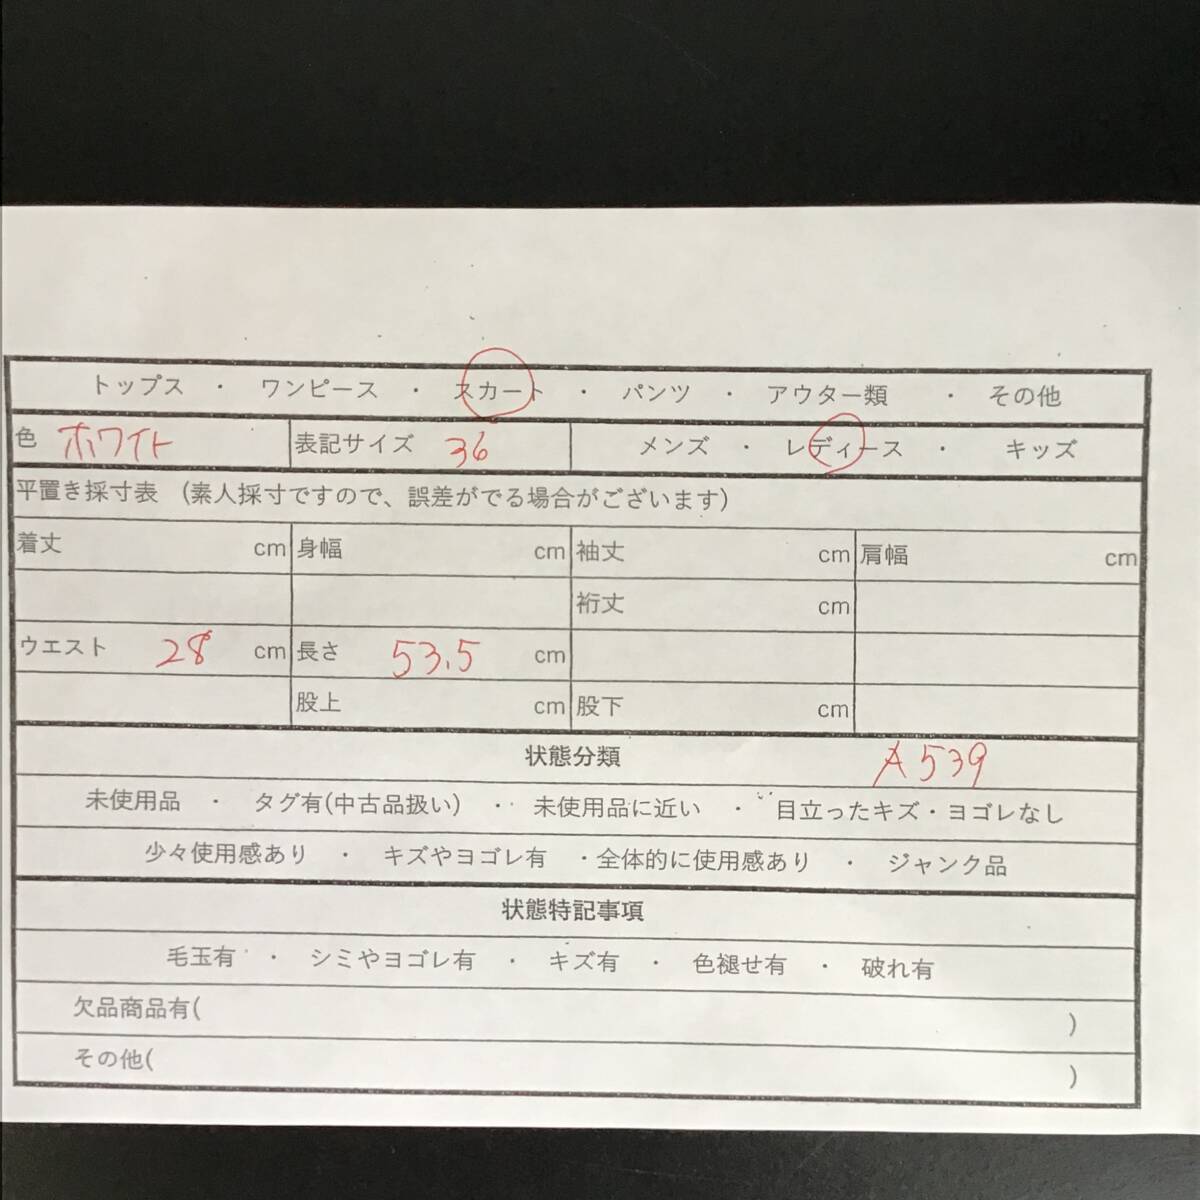 トップス ・ ワンピース ・ スカート ・ パンツ ・ アウター類 ・ その他
色 ホワイト 表記サイズ 36 メンズ ・ レディース ・ キッズ
平置き採寸表 (素人採寸ですので、誤差がでる場合がございます)
着丈 cm 身幅 cm 袖丈 cm 肩幅 cm
裄丈 cm
ウエスト 28 cm 長さ 53.5 cm
股上 cm 股下 cm
状態分類 A539
未使用品 ・ タグ有(中古品扱い) ・ 未使用品に近い ・ 目立ったキズ・ヨゴレなし
少々使用感あり ・ キズやヨゴレ有 ・全体的に使用感あり ・ ジャンク品
状態特記事項
毛玉有 ・ シミやヨゴレ有 ・ キズ有 ・ 色褪せ有 ・ 破れ有
欠品商品有( )
その他( )